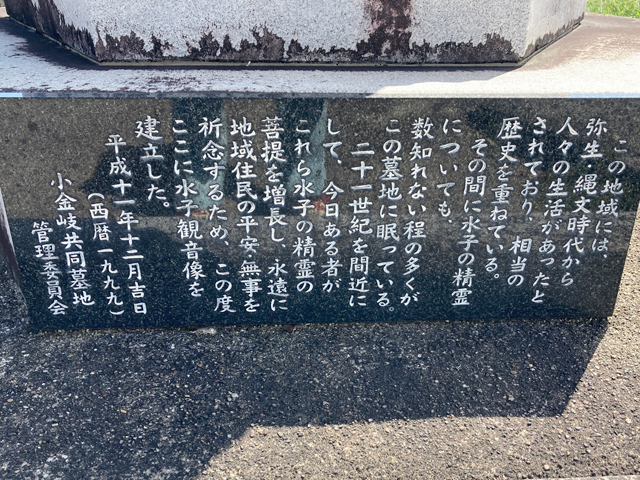 この地域には、
弥生 縄文時代から
人々の生活があったと
されており、相当の
歴史を重ねている。
その間に水子の精霊
についても、
数知れない程の多くが
この墓地に眠っている。
二十一世紀を間近に
して、今日ある者が
これら水子の精霊の
菩提を増長し、永遠に
地域住民の平安・無事を
祈念するため、この度
ここに水子観音像を
建立した。
平成十一年十二月吉日
(西暦一九九九)
小金岐共同墓地
管理委員会